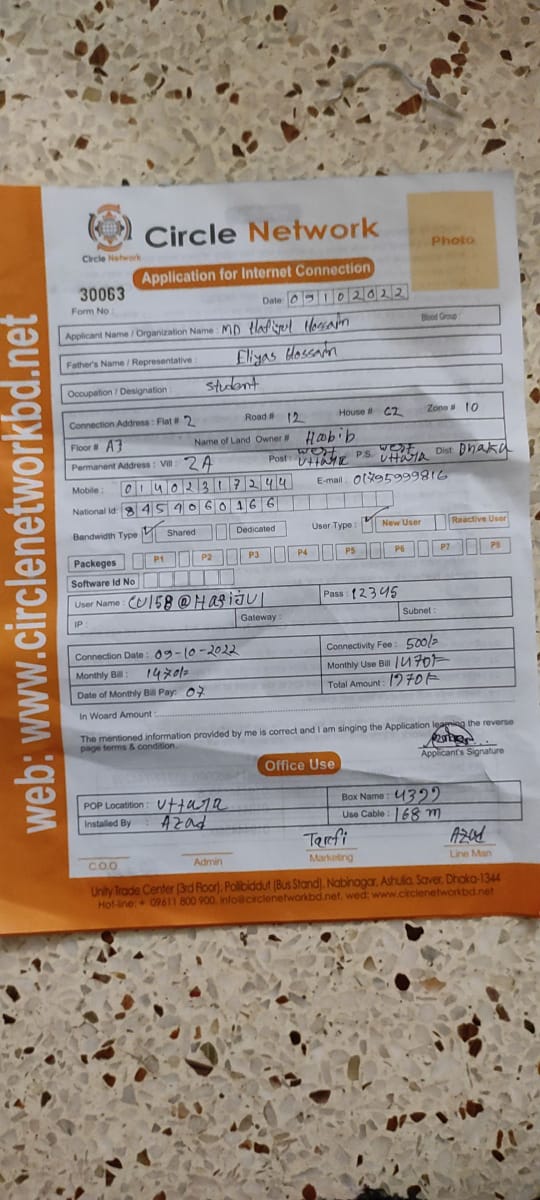 Circle Network
Circle Network
Photo
Application for Internet Connection
30063
Form No :
Date: 09102022
Applicant Name / Organization Name : MD Hafijul Hossain
Blood Group :
Father's Name / Representative : Eliyas Hossain
Occupation / Designation : Student
Connection Address : Flat # 2 Road # 12 House # C2 Zone # 10
Floor # A7 Name of Land Owner # Habib
Permanent Address : Vill : 2A Post : West Uttara P.S. West Uttara Dist: Dhaka
Mobile : 01402317244 E-mail : 01795999816
National Id: 8454060166
Bandwidth Type ✓ Shared Dedicated User Type : ✓ New User Reactive User
Packeges P1 P2 P3 P4 P5 P6 P7 P8
Software Id No
User Name : CU158@Hafijul Pass : 12345
IP : Gateway : Subnet :
Connection Date : 09-10-2022 Connectivity Fee : 500/=
Monthly Bill : 1470/= Monthly Use Bill 1470/=
Date of Monthly Bill Pay: 07 Total Amount : 1970/=
In Woard Amount :
The mentioned information provided by me is correct and I am singing the Application learning the reverse
page terms & condition.
Applicant's Signature
Office Use
POP Locatition : Uttara Box Name : 4399
Installed By : Azad Use Cable : 168 m
Tarfi Azad
C.O.O Admin Marketing Line Man
Unity Trade Center (3rd Floor), Pollibiddut (Bus Stand), Nabinagar, Ashulia, Saver, Dhaka-1344
Hot-line: + 09611 800 900, info@circlenetworkbd.net, wed: www.circlenetworkbd.net
web: www.circlenetworkbd.net